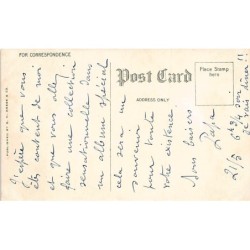 FOR CORRESPONDENCE
Post Card
ADDRESS ONLY
Place Stamp
here
J'espère que vous
êtes content de moi
et que vous allez
faire une collection
sensationnelle dans
un album spécial
cela sera un
souvenir
pour toute
votre existence.
Nous baisers
Papa
2/5 6h3/4 soir
Je vais dîner !!